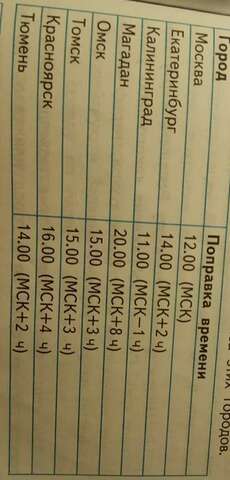 этих городов.
Город Поправка времени
Москва 12.00 (МСК)
Екатеринбург 14.00 (МСК+2 ч)
Калининград 11.00 (МСК–1 ч)
Магадан 20.00 (МСК+8 ч)
Омск 15.00 (МСК+3 ч)
Томск 15.00 (МСК+3 ч)
Красноярск 16.00 (МСК+4 ч)
Тюмень 14.00 (МСК+2 ч)